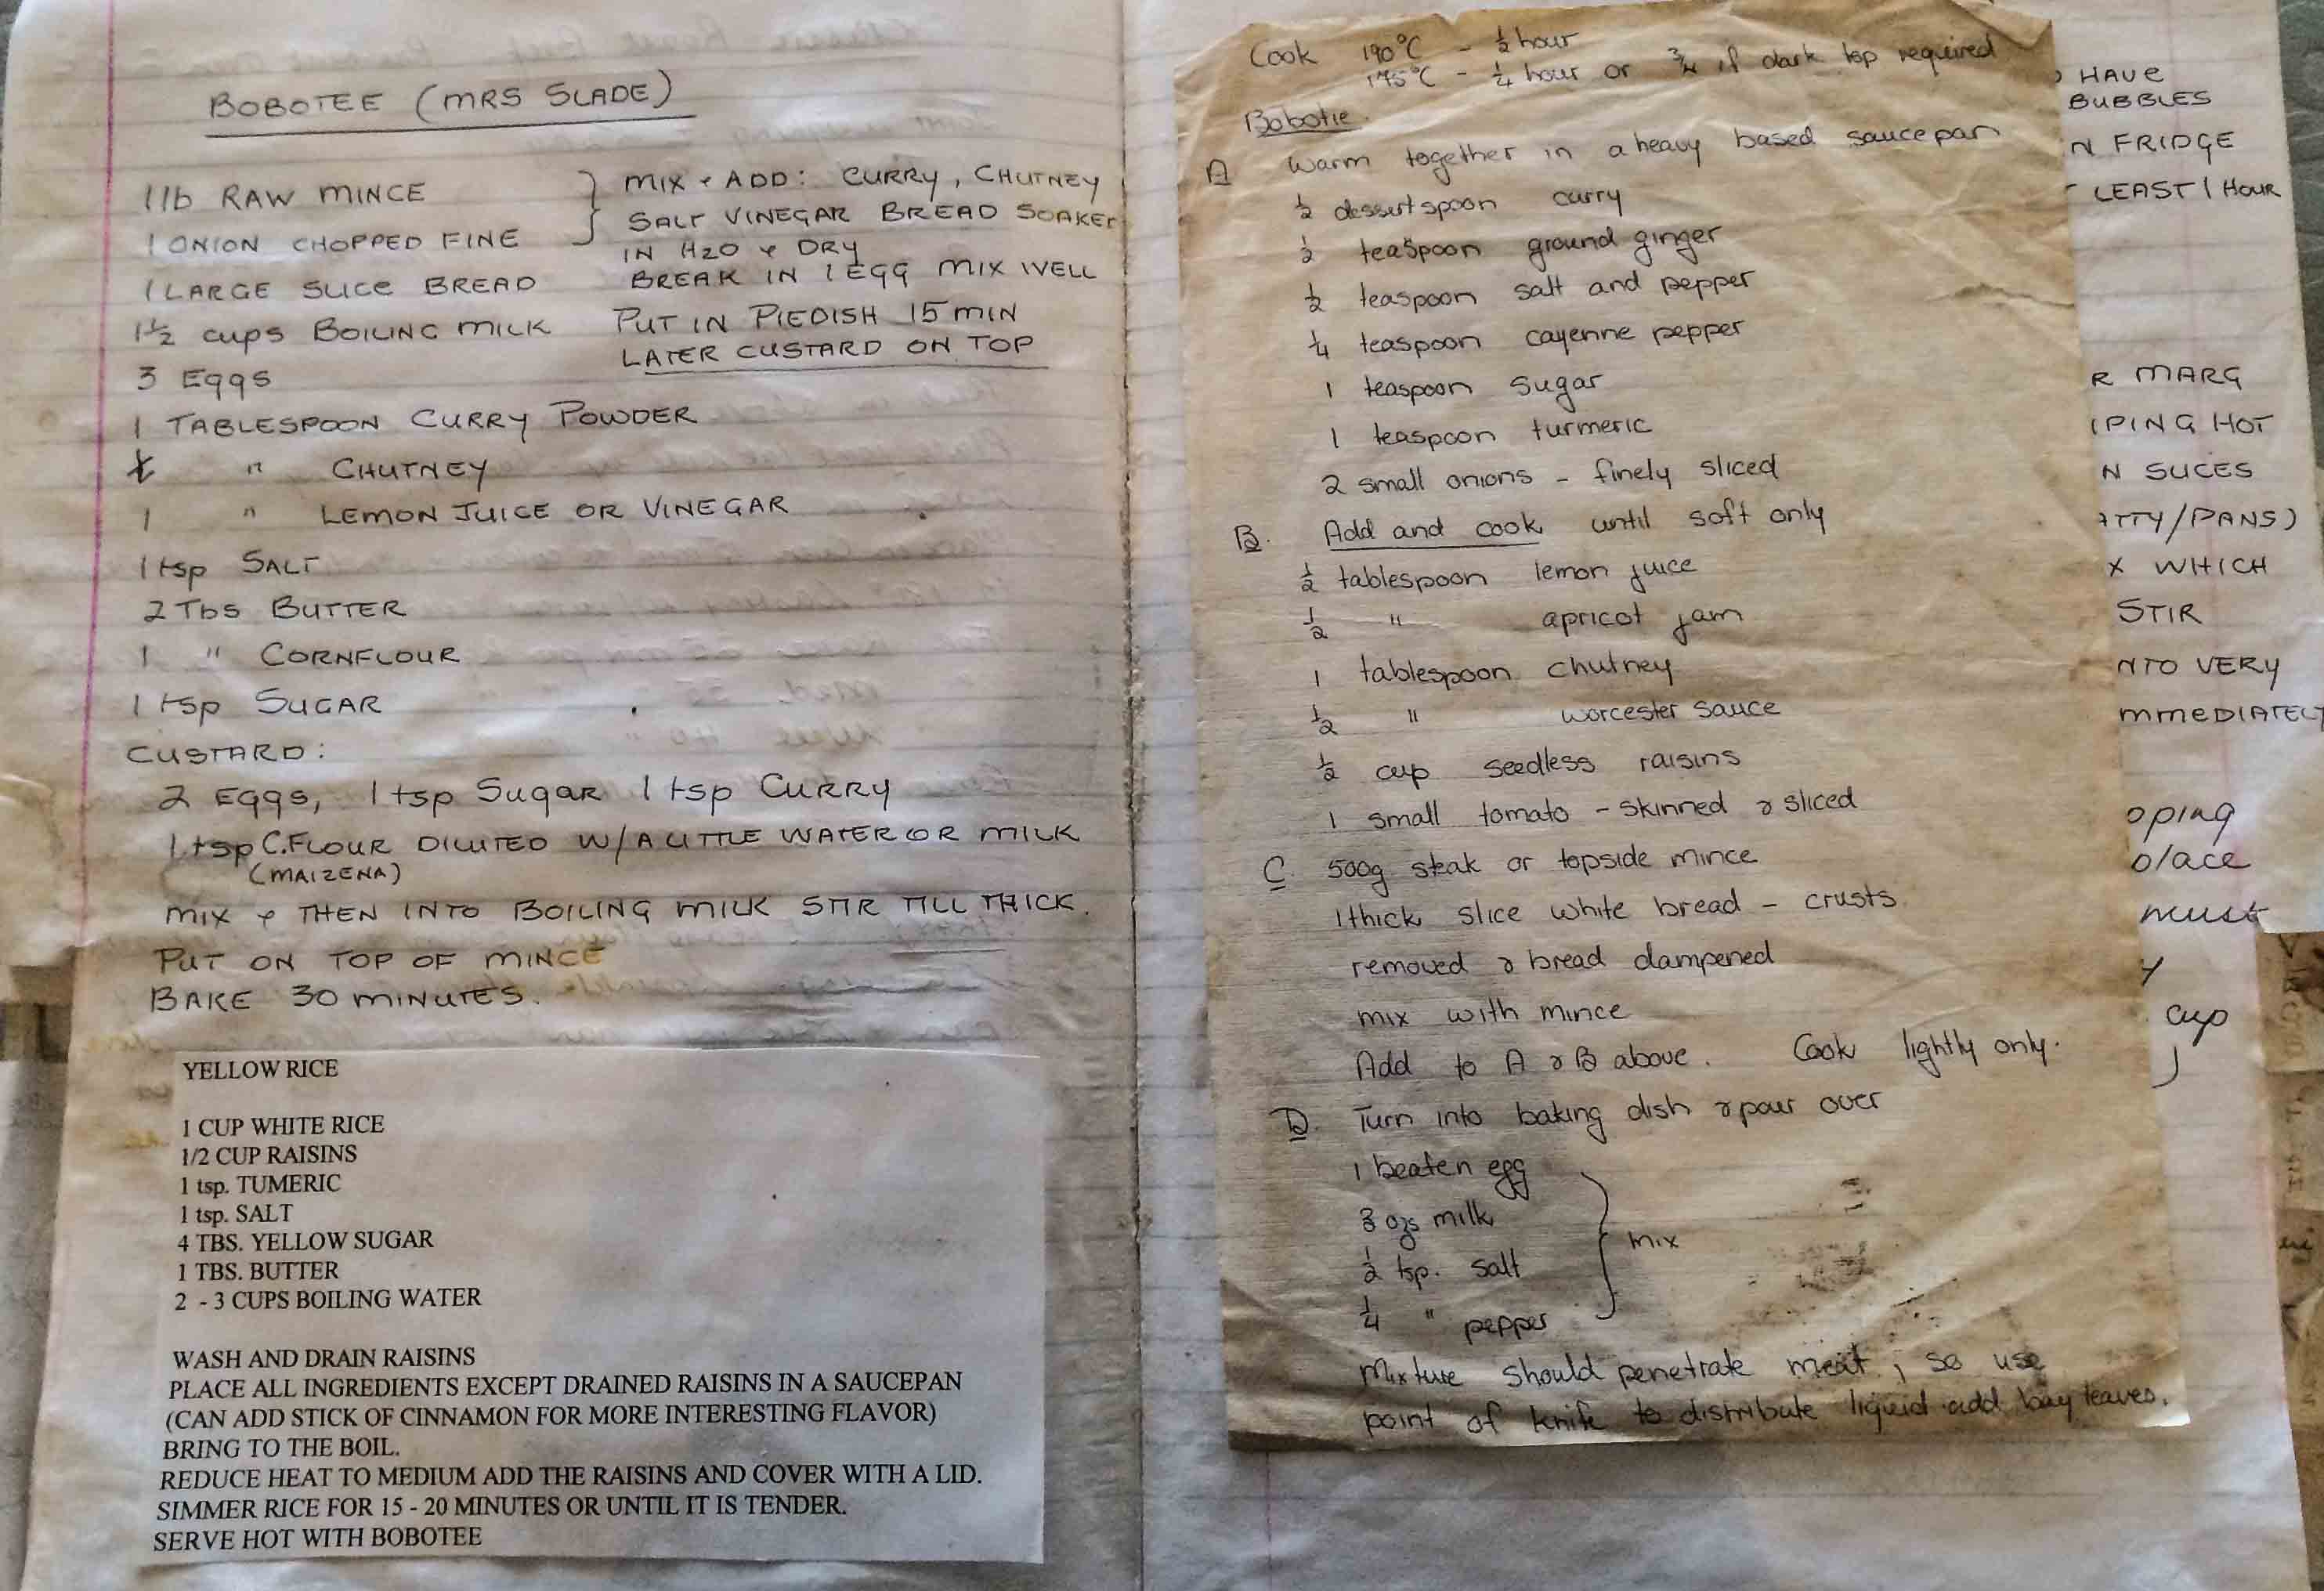 BOBOTEE (MRS SLADE)
1lb RAW MINCE
1 ONION CHOPPED FINE
1 LARGE SLICE BREAD
1½ cups BOILING MILK
3 Eggs
1 TABLESPOON CURRY POWDER
" CHUTNEY
1 " LEMON JUICE OR VINEGAR
1 tsp SALT
2 Tbs BUTTER
1 " CORNFLOUR
1 tsp SUGAR
MIX & ADD: CURRY, CHUTNEY
SALT VINEGAR BREAD SOAKED
IN H2O & DRY
BREAK IN 1 EGG MIX WELL
PUT IN PIEDISH 15 MIN
LATER CUSTARD ON TOP
CUSTARD:
2 Eggs, 1 tsp Sugar 1 tsp CURRY
1 tsp C.FLOUR DILUTED W/A LITTLE WATER OR MILK
(MAIZENA)
MIX & THEN INTO BOILING MILK STIR TILL THICK.
PUT ON TOP OF MINCE
BAKE 30 MINUTES.
YELLOW RICE
1 CUP WHITE RICE
1/2 CUP RAISINS
1 tsp. TUMERIC
1 tsp. SALT
4 TBS. YELLOW SUGAR
1 TBS. BUTTER
2 - 3 CUPS BOILING WATER
WASH AND DRAIN RAISINS
PLACE ALL INGREDIENTS EXCEPT DRAINED RAISINS IN A SAUCEPAN
(CAN ADD STICK OF CINNAMON FOR MORE INTERESTING FLAVOR)
BRING TO THE BOIL.
REDUCE HEAT TO MEDIUM ADD THE RAISINS AND COVER WITH A LID.
SIMMER RICE FOR 15 - 20 MINUTES OR UNTIL IT IS TENDER.
SERVE HOT WITH BOBOTEE
Cook 190°C - ½ hour
175°C - ¼ hour or ¾ if dark top required
Bobotie
A Warm together in a heavy based saucepan
½ dessertspoon curry
½ teaspoon ground ginger
½ teaspoon salt and pepper
¼ teaspoon cayenne pepper
1 teaspoon sugar
1 teaspoon turmeric
2 small onions - finely sliced
B. Add and cook until soft only
½ tablespoon lemon juice
½ " apricot jam
1 tablespoon chutney
½ " worcester sauce
½ cup seedless raisins
1 small tomato - skinned & sliced
C 500g steak or topside mince
1 thick slice white bread - crusts
removed & bread dampened
mix with mince
Add to A & B above. Cook lightly only.
D. Turn into baking dish & pour over
1 beaten egg
ozs milk
½ tsp. salt
¼ " pepper
mix
Mixture should penetrate meat, so use
point of knife to distribute liquid. add bay leaves.
HAVE
BUBBLES
N FRIDGE
LEAST 1 HOUR
R MARG
IPING HOT
N SLICES
ATTY/PANS)
X WHICH
STIR
NTO VERY
MMEDIATELY
oping
place
must
y
cup
)